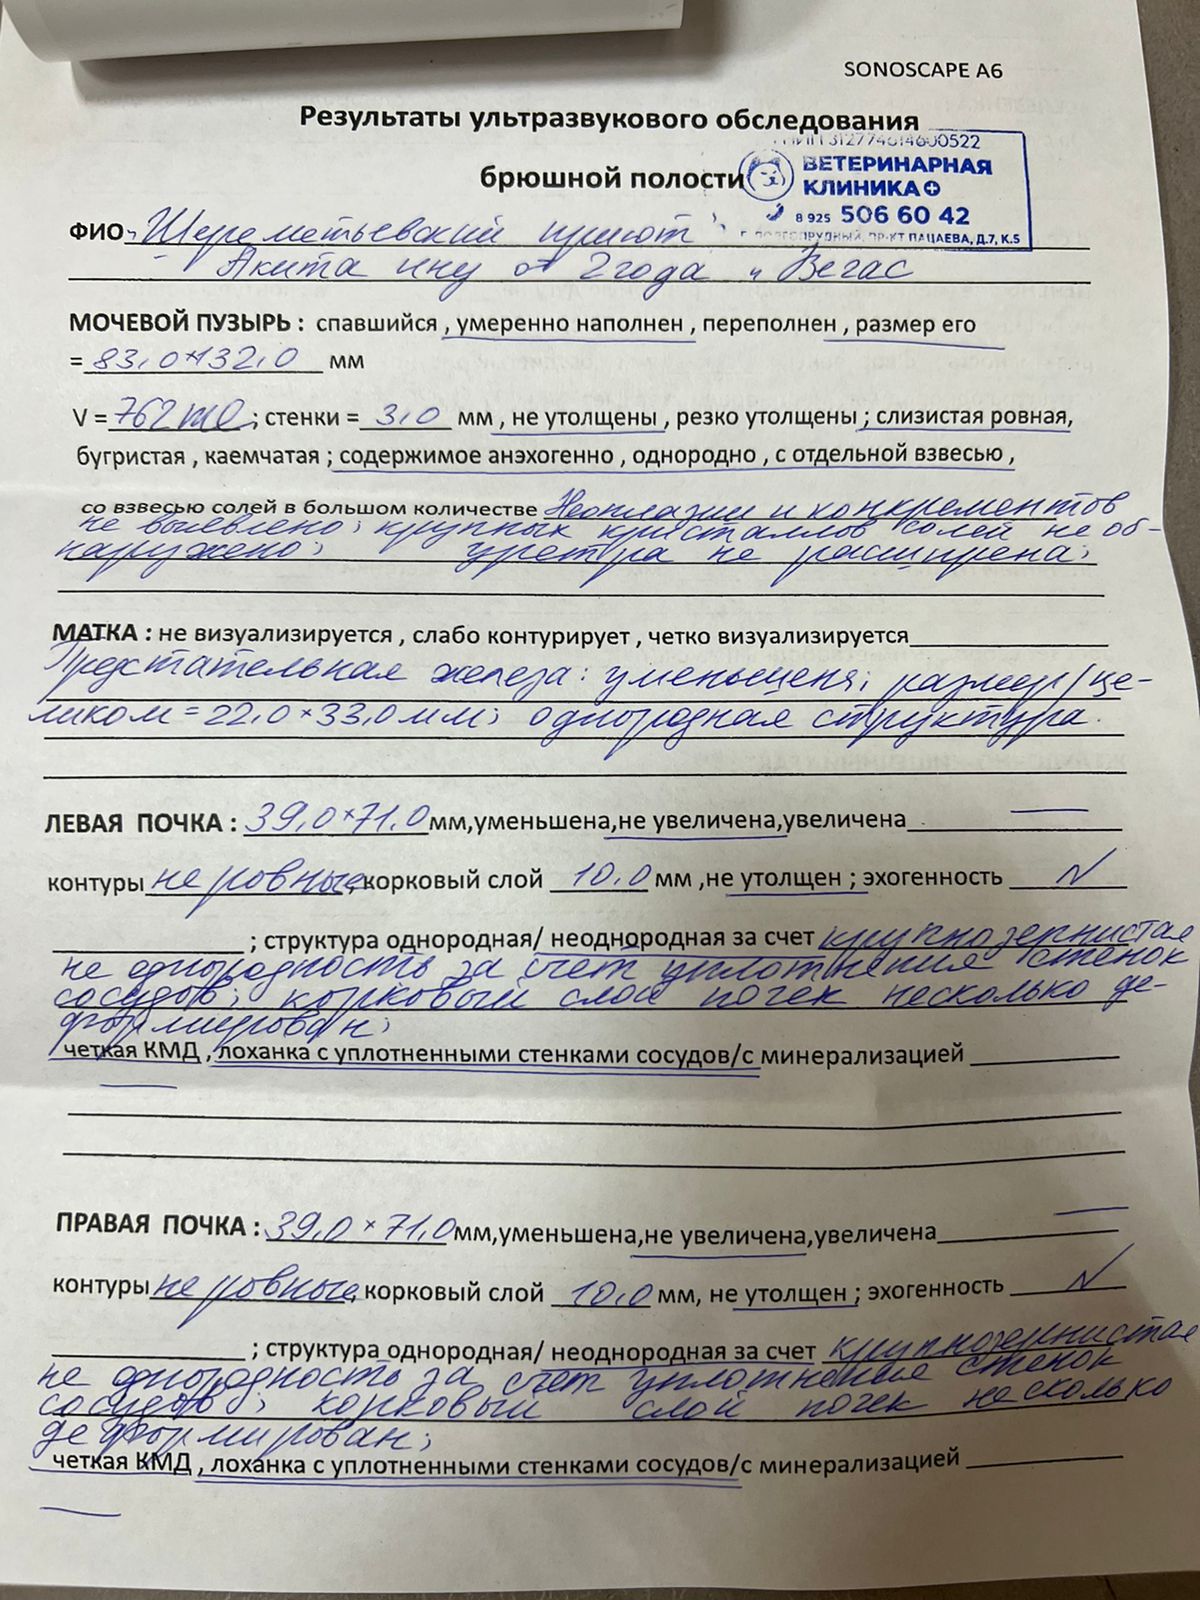 SONOSCAPE A6
Результаты ультразвукового обследования
брюшной полости
312774614600522
ВЕТЕРИНАРНАЯ
КЛИНИКА
8 925 506 60 42
Г. ДОЛГОПРУДНЫЙ, ПР-КТ ПАЦАЕВА, Д.7, К.5
ФИО Шереметьевский приют;
Акита ину ♂ 2года "Вегас
МОЧЕВОЙ ПУЗЫРЬ : спавшийся , умеренно наполнен , переполнен , размер его
= 83,0×132,0 мм
V = 762 ml ; стенки = 3,0 мм , не утолщены , резко утолщены ; слизистая ровная,
бугристая , каемчатая ; содержимое анэхогенно , однородно , с отдельной взвесью ,
со взвесью солей в большом количестве Неоплазии и конкрементов
не выявлено; крупных кристаллов солей не об-
наружено; уретра не расширена;
МАТКА : не визуализируется , слабо контурирует , четко визуализируется
Предстательная железа: уменьшена; размер/це-
ликом = 22,0 × 33,0 мм; однородная структура.
ЛЕВАЯ ПОЧКА : 39,0×71,0 мм,уменьшена,не увеличена,увеличена
контуры не ровные, корковый слой 10.0 мм ,не утолщен ; эхогенность N
; структура однородная/ неоднородная за счет крупнозернистая
не однородность за счёт уплотнения стенок
сосудов; корковый слой почек несколько де-
формирован;
четкая КМД , лоханка с уплотненными стенками сосудов/с минерализацией
ПРАВАЯ ПОЧКА : 39,0 × 71,0 мм,уменьшена,не увеличена,увеличена
контуры не ровные, корковый слой 10,0 мм, не утолщен ; эхогенность N
; структура однородная/ неоднородная за счет крупнозернистая
не однородность за счет уплотнения стенок
сосудов; корковый слой почек несколько
деформирован;
четкая КМД , лоханка с уплотненными стенками сосудов/с минерализацией